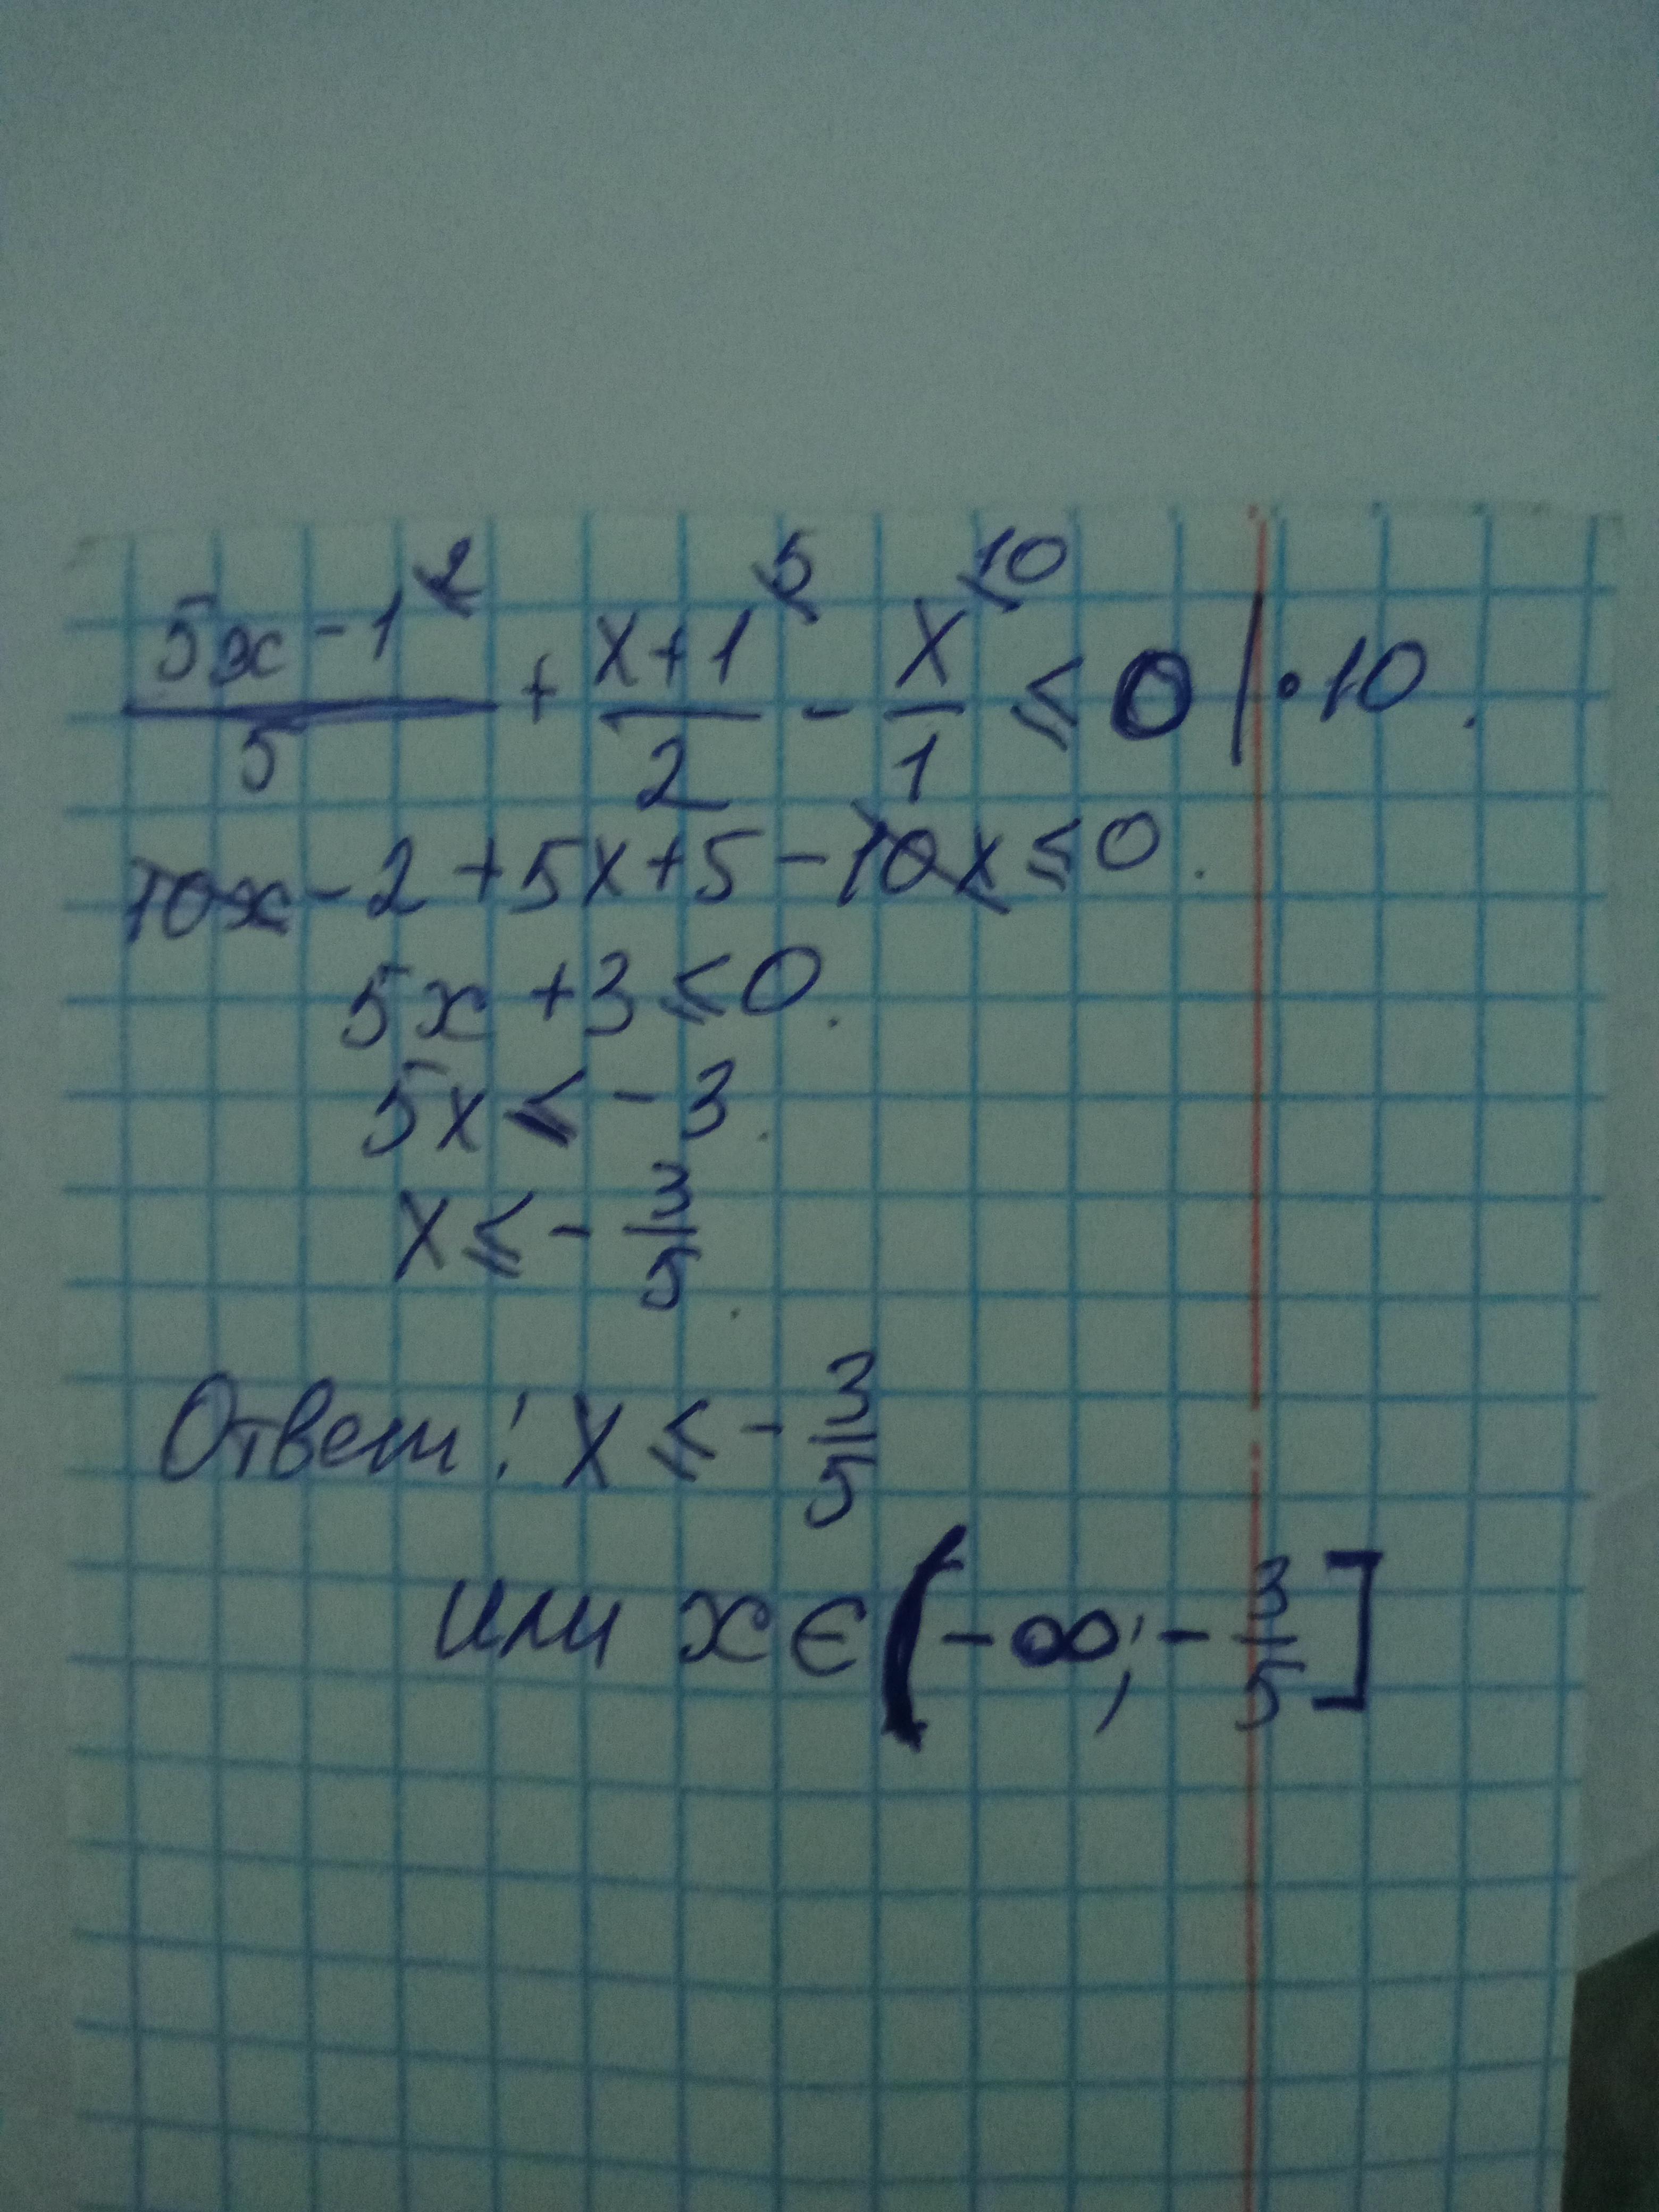 (5x-1)/5 ^2 + (x+1)/2 ^5 - x/1 ^10 ≤ 0 | • 10.
10x - 2 + 5x + 5 - 10x ≤ 0.
5x + 3 ≤ 0.
5x ≤ - 3.
x ≤ - 3/5.
Ответ: x ≤ - 3/5
или x ∈ (-∞; - 3/5]